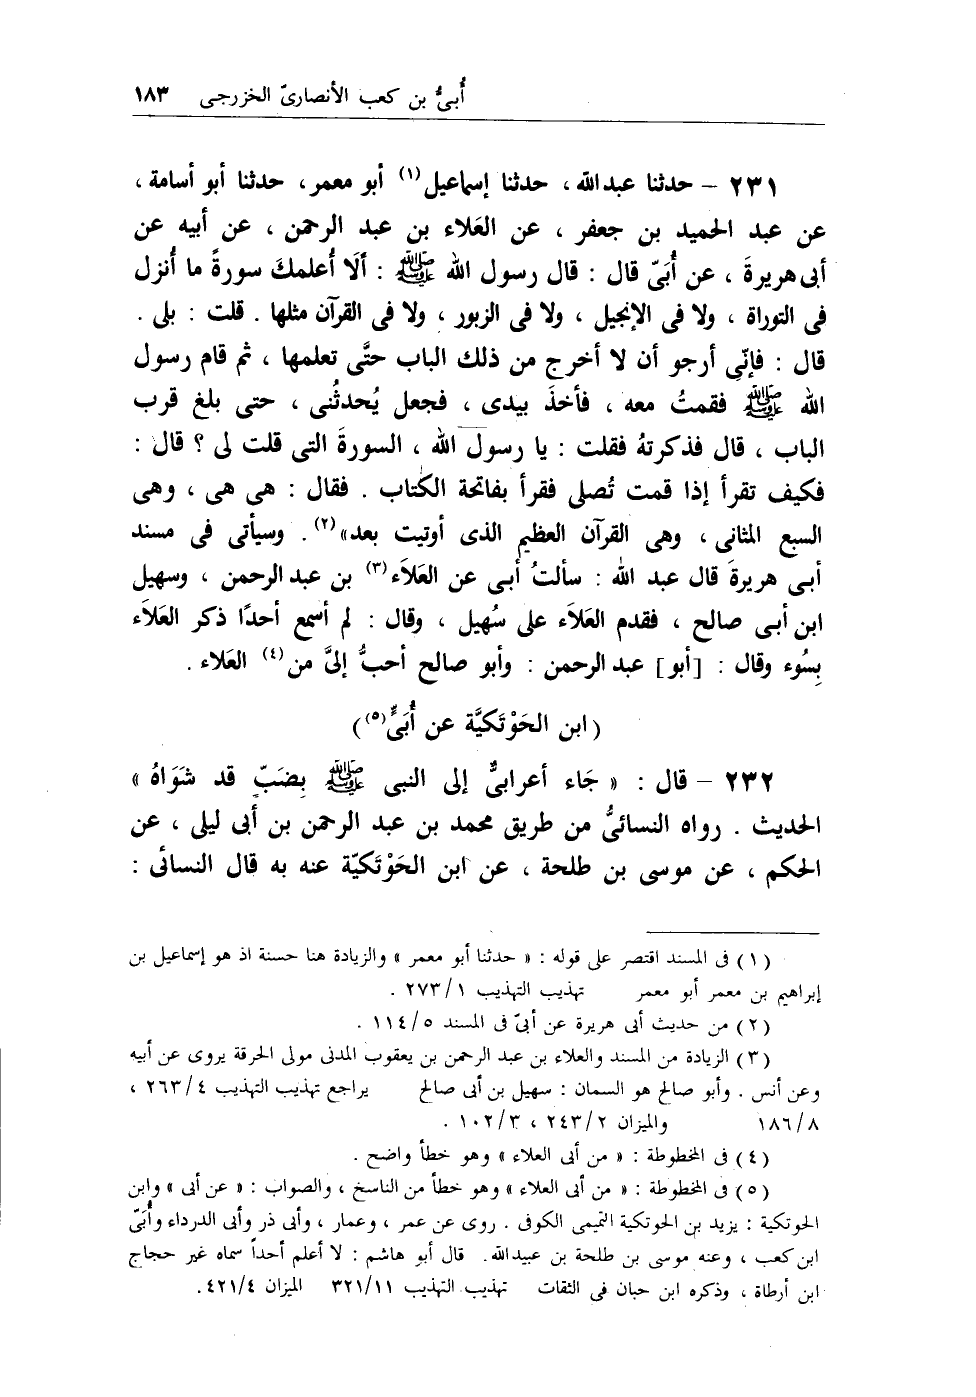 أُبىُّ بن كعب الأنصارىّ الخزرجى ١٨٣
٢٣١ – حدثنا عبدالله ، حدثنا إسماعيل(١) أبو معمر، حدثنا أبو أسامة ،
عن عبد الحميد بن جعفر ، عن العَلاء بن عبد الرحمن ، عن أبيه عن
أبى هريرةَ ، عن أُبَىّ قال : قال رسول الله ﷺ : ألَا أُعلمكَ سورةً ما أُنزل
فى التوراة ، ولا فى الإنجيل ، ولا فى الزبور ، ولا فى القرآن مثلها . قلت : بلى .
قال : فإنّى أرجو أن لا أخرج من ذلك الباب حتَّى تعلمها ، ثم قام رسول
الله ﷺ فقمتُ معه ، فأخذَ بيدى ، فجعل يُحدثُنى ، حتى بلغ قرب
الباب ، قال فذكرتهُ فقلت : يا رسولَ الله ، السورةَ التى قلت لى ؟ قال :
فكيف تقرأ إذا قمت تُصلى فقرأ بفاتحة الكتاب . فقال : هى هى ، وهى
السبع المثانى ، وهى القرآن العظيم الذى أوتيت بعد»(٢) . وسيأتى فى مسند
أبى هريرةَ قال عبد الله : سألتُ أبى عن العَلَاء(٣) بن عبد الرحمن ، وسهيل
ابن أبى صالح ، فقدم العَلَاء على سُهيل ، وقال : لم أسمع أحدًا ذكر العَلَاء
بِسُوء وقال : [أبو] عبد الرحمن : وأبو صالح أحبُّ إلىَّ من(٤) العَلاء .
(ابن الحَوْتَكيَّة عن أُبَىٍّ(٥))
٢٣٢ – قال : « جَاء أعرابىٌّ إلى النبى ﷺ بِضَبّ قد شَوَاهُ »
الحديث . رواه النسائىُّ من طريق محمد بن عبد الرحمن بن أبى ليلى ، عن
الحكم ، عن موسى بن طلحة ، عن ابن الحَوْتَكيّة عنه به قال النسائى :
(١) فى المسند اقتصر على قوله : « حدثنا أبو معمر » والزيادة هنا حسنة اذ هو إسماعيل بن
إبراهيم بن معمر أبو معمر تهذيب التهذيب ٢٧٣/١ .
(٢) من حديث أبى هريرة عن أبىّ فى المسند ١١٤/٥ .
(٣) الزيادة من المسند والعلاء بن عبد الرحمن بن يعقوب المدنى مولى الحرقة يروى عن أبيه
وعن أنس . وأبو صالح هو السمان : سهيل بن أبى صالح يراجع تهذيب التهذيب ٢٦٣/٤ ،
١٨٦/٨ والميزان ٢٤٣/٢ ، ١٠٢/٣ .
(٤) فى المخطوطة : « من أبى العلاء » وهو خطأ واضح .
(٥) فى المخطوطة : « من أبى العلاء » وهو خطأ من الناسخ ، والصواب : « عن أبى » وابن
الحوتكية : يزيد بن الحوتكية التميمى الكوفى . روى عن عمر ، وعمار ، وأبى ذر وأبى الدرداء وأُبَىّ
ابن كعب ، وعنه موسى بن طلحة بن عبيدالله. قال أبو هاشم : لا أعلم أحداً سماه غير حجاج
ابن أرطاة ، وذكره ابن حبان فى الثقات تهذيب التهذيب ٣٢١/١١ الميزان ٤٢١/٤ .